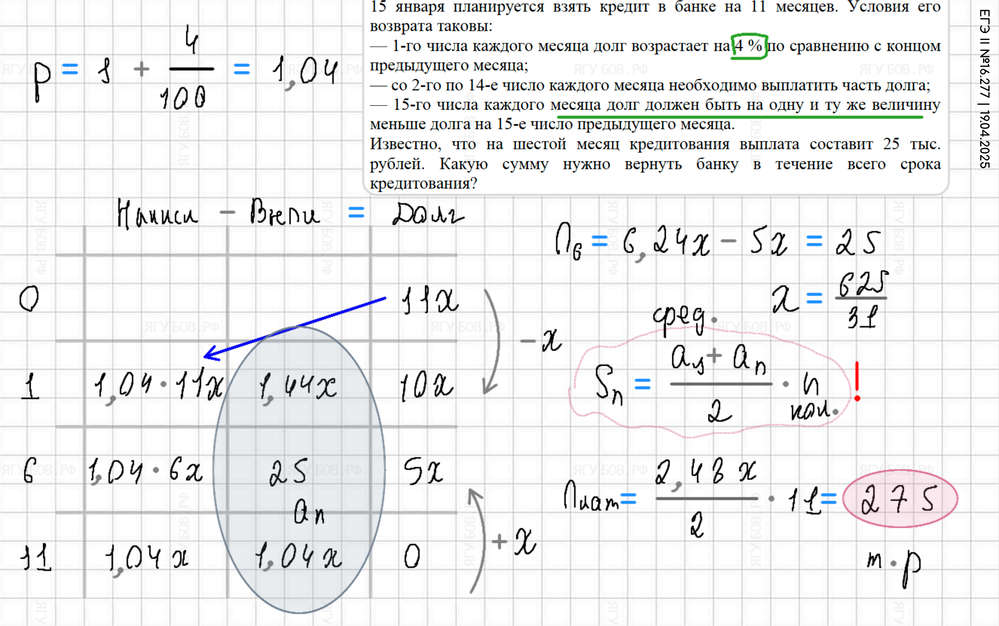 15 января планируется взять кредит в банке на 11 месяцев. Условия его
возврата таковы:
— 1-го числа каждого месяца долг возрастает на 4 % по сравнению с концом
предыдущего месяца;
— со 2-го по 14-е число каждого месяца необходимо выплатить часть долга;
— 15-го числа каждого месяца долг должен быть на одну и ту же величину
меньше долга на 15-е число предыдущего месяца.
Известно, что на шестой месяц кредитования выплата составит 25 тыс.
рублей. Какую сумму нужно вернуть банку в течение всего срока
кредитования?
ЕГЭ II №16.277 | 19.04.2025
p = 1 + 4/100 = 1,04
Начисл – Выпл = Долг
0 11x
– x
1 1,04 · 11x 1,44x 10x
6 1,04 · 6x 25 5x
an
11 1,04x 1,04x 0
+ x
П6 = 6,24x – 5x = 25
x = 625/31
сред.
Sn = a1 + an / 2 · n !
кол.
Плат = 2,48x / 2 · 11 = 275
т.р
ЯГУБОВ.РФ